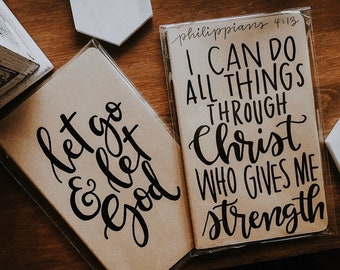 let go
& let
God
philippians 4:13
I CAN DO
ALL THINGS
THROUGH
Christ
WHO GIVES ME
strength